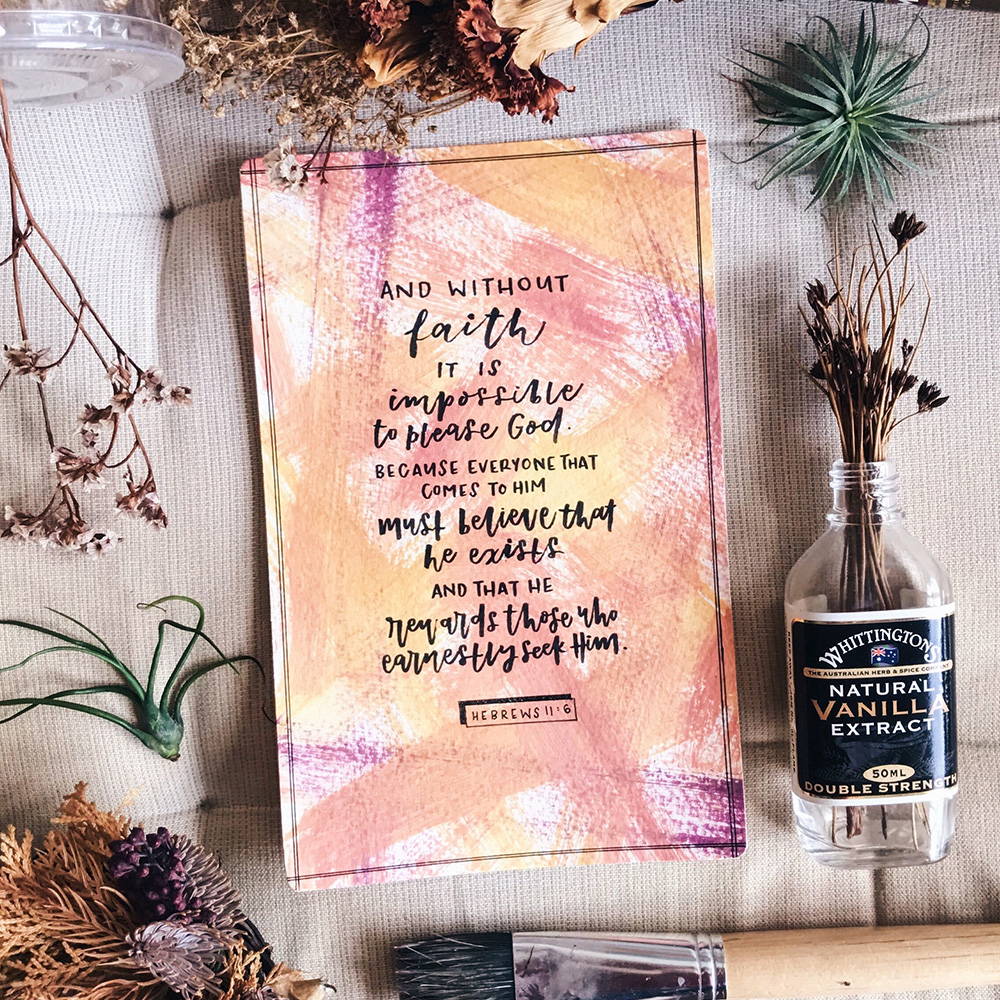 AND WITHOUT
faith
IT IS
impossible
to please God.
BECAUSE EVERYONE THAT
COMES TO HIM
must believe that
he exists
AND THAT HE
rewards those who
earnestly seek Him.
HEBREWS 11:6
WHITTINGTONS
THE AUSTRALIAN HERB & SPICE COMPANY
NATURAL
VANILLA
EXTRACT
50ML
DOUBLE STRENGTH